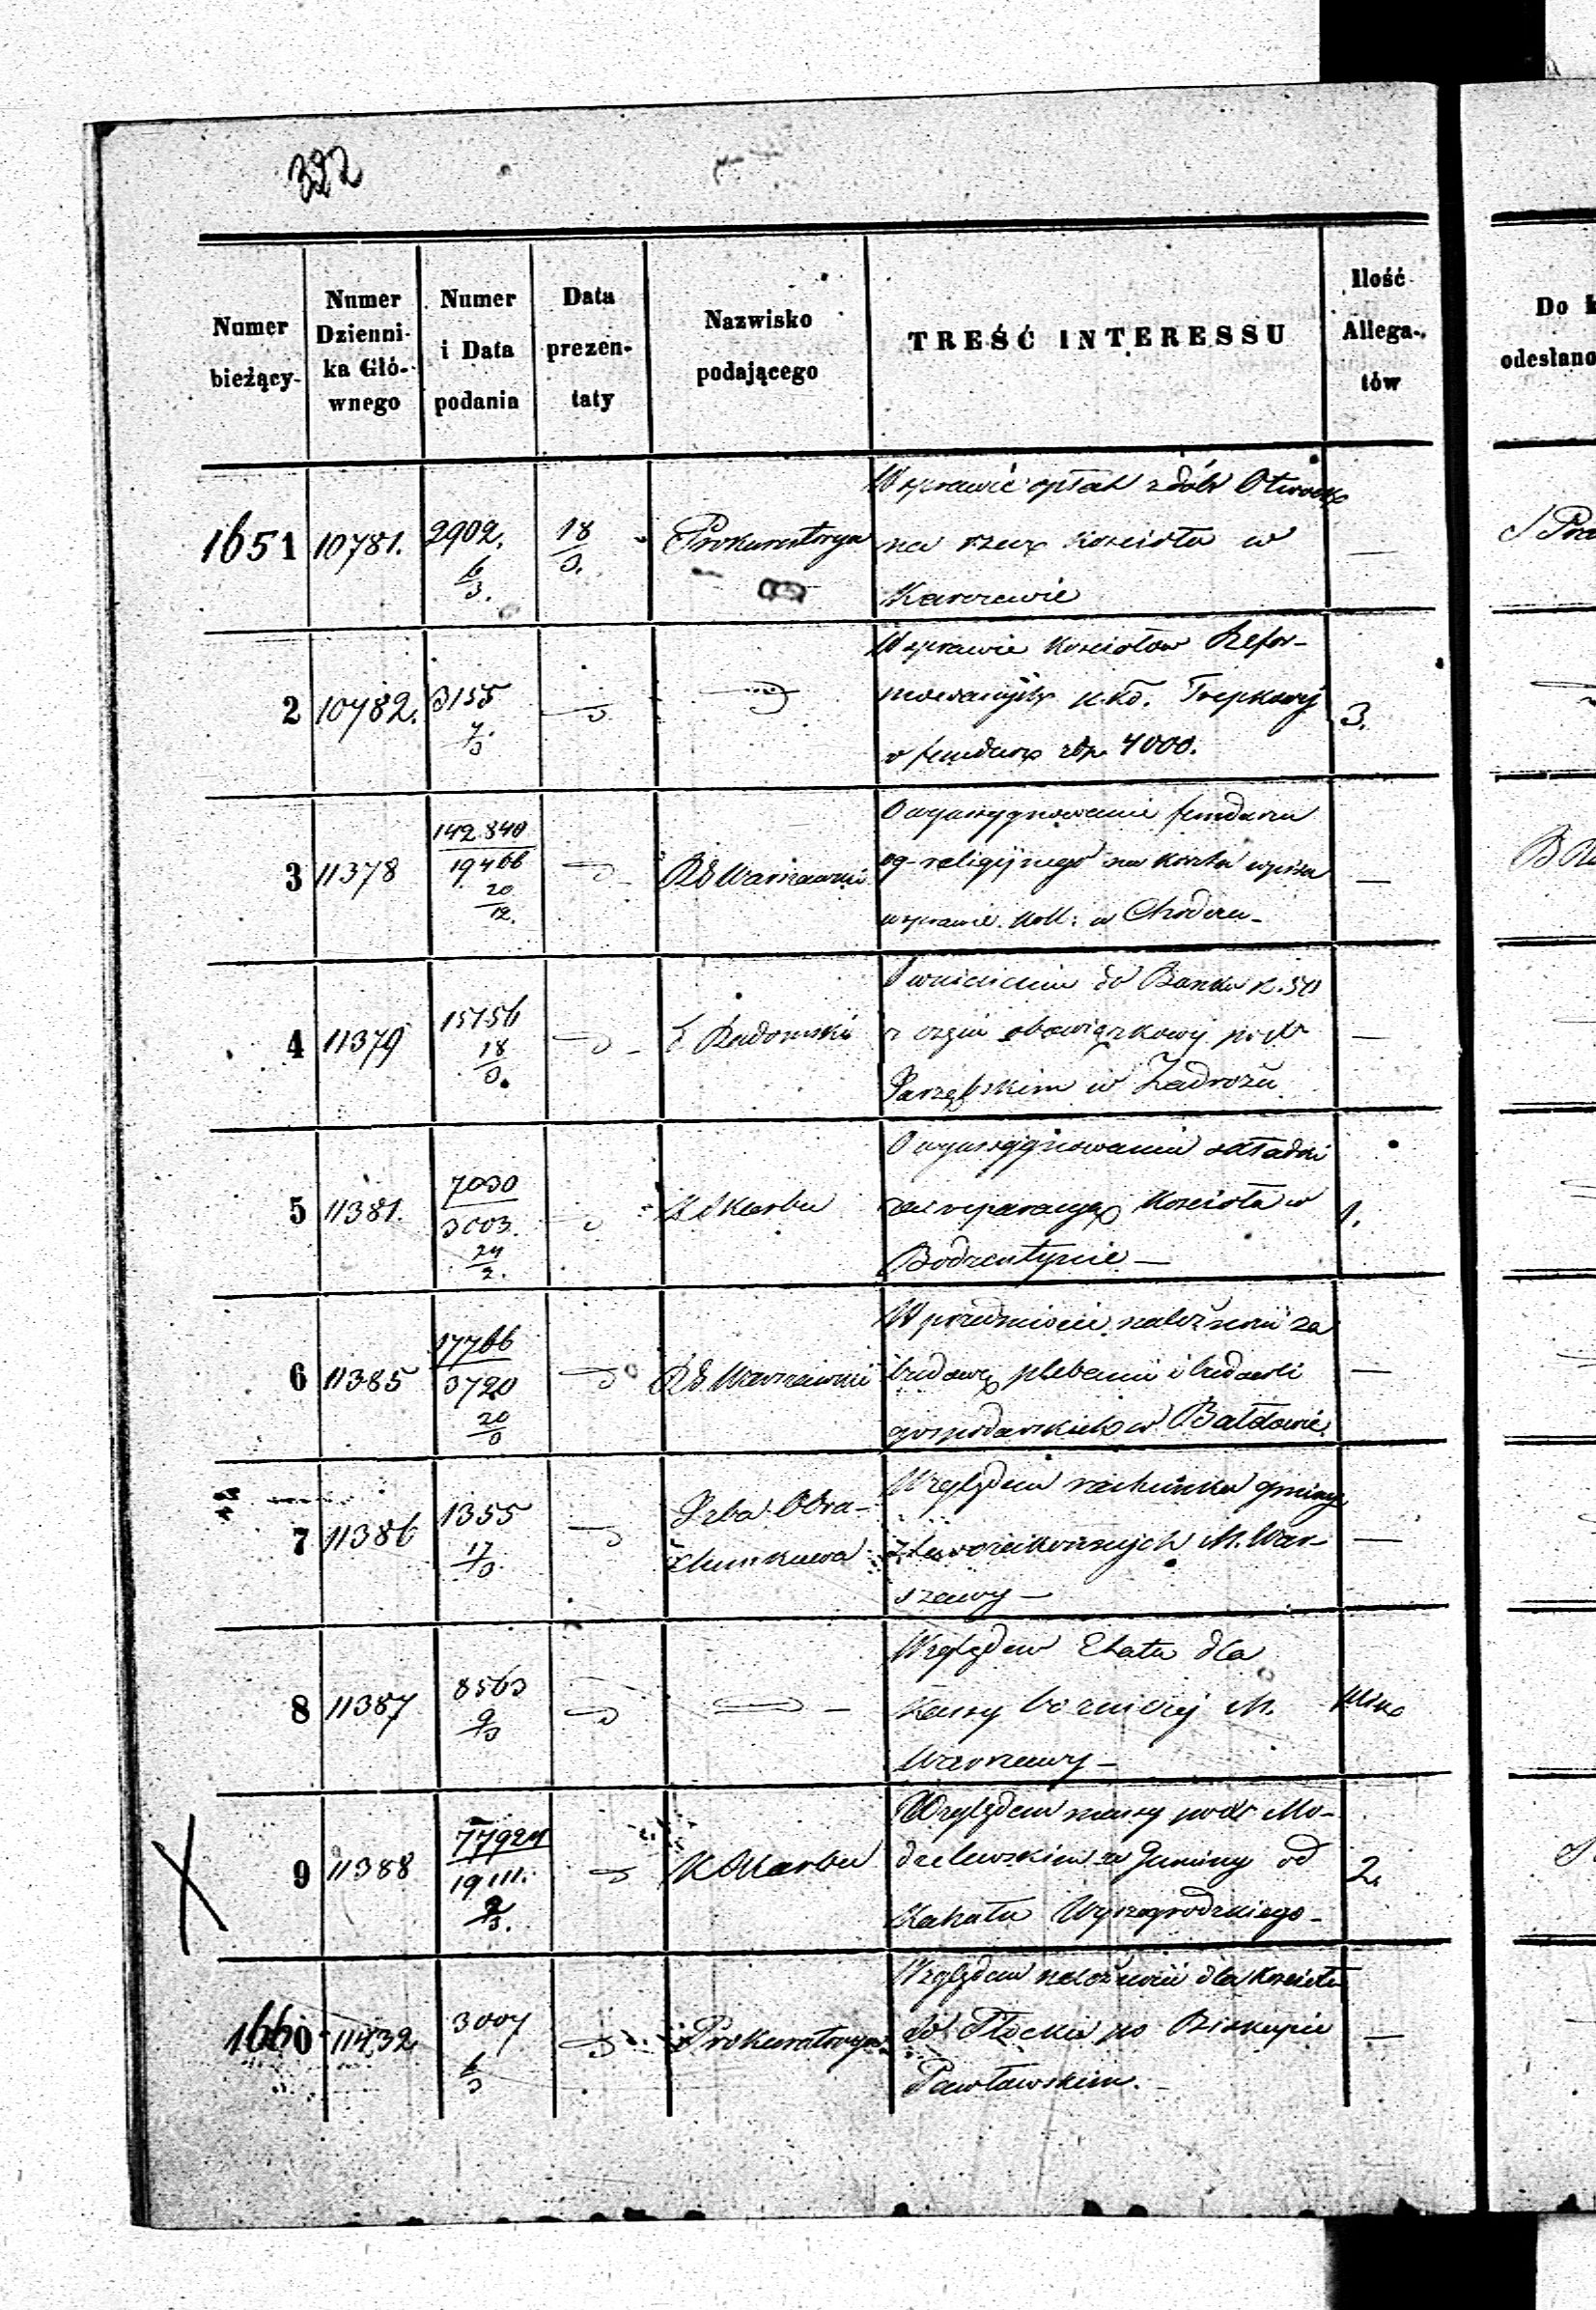 322
Numer bieżący
Numer Dzienni- ka Głó- wnego
Numer i Data podania
Data prezen- taty
Nazwisko podającego
TREŚĆ INTERESSU
Ilość Allega- tów
Do
odesłano
1651 10781. 2902. 6/3. 18/3. Prokuratorya
W sprawie opłat z dóbr Otwock
na rzecz Kościoła w —
Karczewie
2 10782. 3155 7/3
W sprawie Kościołów Refor-
mowanych Trepkowej 3.
o fundusz złp 4000.
3 11378 142840/19466 20/12. Rd Warszawski
O wyassygnowanie funduszu
og-religijnego na koszta wpisu —
w sprawie koll: w Chodczu
4 11379 15756 18/3. Radomski
do Banku
obowiązkowej po X —
Jarzębskim w
5 11381. 7030/3003. 24/2. K Skarbu
O wyassygnowanie składki
na reparacyą Kościoła w 1.
Bodzentynie —
6 11385 17766/3720 20/3 Rd Warszawski
W przedmiocie należności za
budowę plebanii i budowli —
gospodarskich w Bałdowie
7 11386 1355 17/3 Izba Obra-
chunkowa
Względem rachunku gminy
starozakonnych M. War- —
szawy —
8 11387 8563 9/3
Względem Etatu dla
Kassy bożniczej M.
Warszawy —
9 11388 77924/19111. 9/3. K Skarbu
Względem massy po X Mo-
dzelewskim za Gminy od 2.
Kahału Wyszogrodzkiego —
1660 11432 3007 6/3 Prokuratorya
Względem należności dla Kościoła
w Płocku po Biskupie —
Pawłowskim.